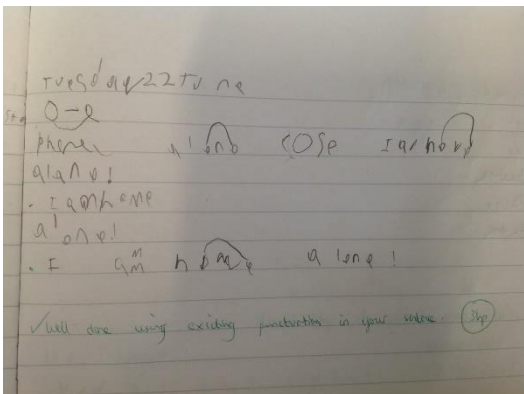 Tuesday 22 June
O-e
phone alone cose I am home
alane!
. I am home
alone!
. I am home alone!
✓ well done using exciting punctuation in your sentence.